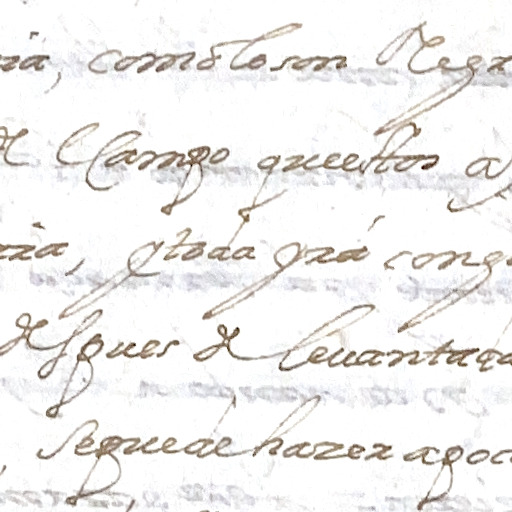 ria, como lo son Regr
de Campo questos a
rria, y toda yrá cong
despues de leuantada
, se puede hazer a poc